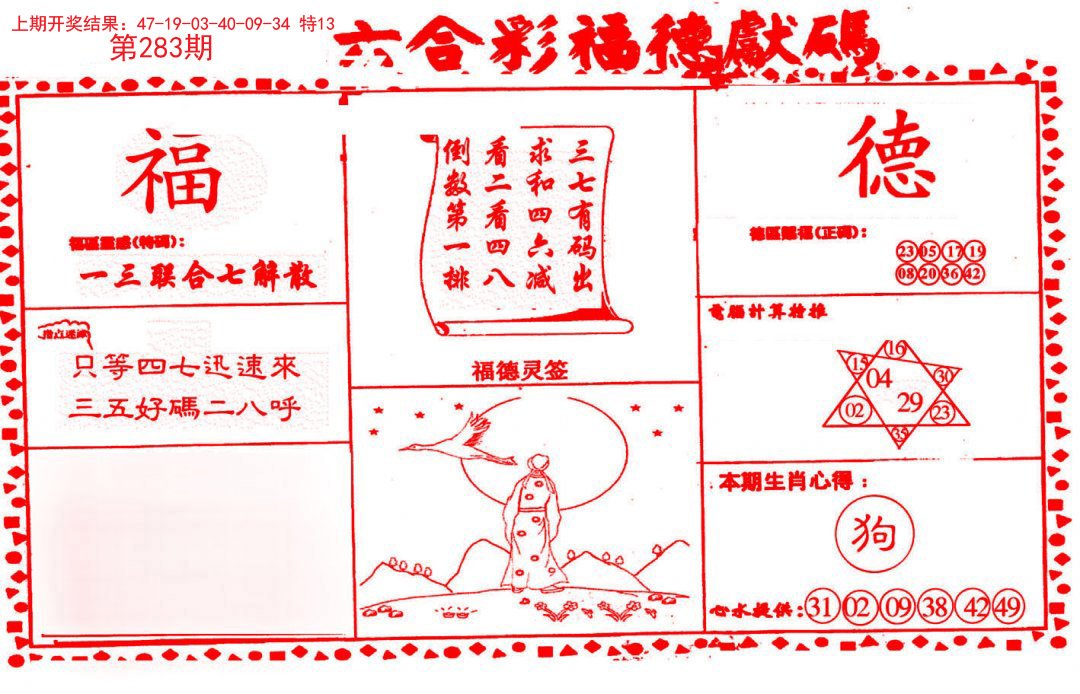 上期开奖结果：47-19-03-40-09-34 特13
第283期
六合彩福德獻碼
福
福區靈感(特碼)：
一三联合七解散
指点迷津
只等四七迅速來
三五好碼二八呼
三七有码出
求和四六减
看二看四八
倒数第一排
福德灵签
德
德區賜福(正碼)：
23 05 17 19
08 20 36 42
電腦計算特推
16
15
04
30
02
29
23
35
本期生肖心得：
狗
心水提供：31 02 09 38 42 49